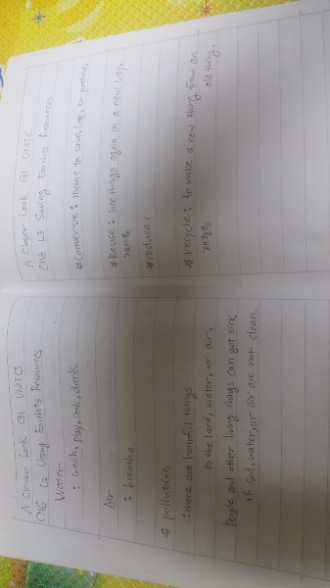 A Closer Look G1 UNITC
CH6 L2 Using Earth's Resources
Water
: wash, play, cook, drink
Air
: breathe
* pollution
: there are harmful things
in the land, water, or air.
People and other living things can get sick
if soil, water, or air are not clean.
A Closer Look G1 UNITC
CH6 L3 Saving Earth's Resources
* Conserve : means to save, to protect.
* Reuse : use things again in a new way.
* reduce :
* recycle : to make a new thing from an
old thing.
재활용